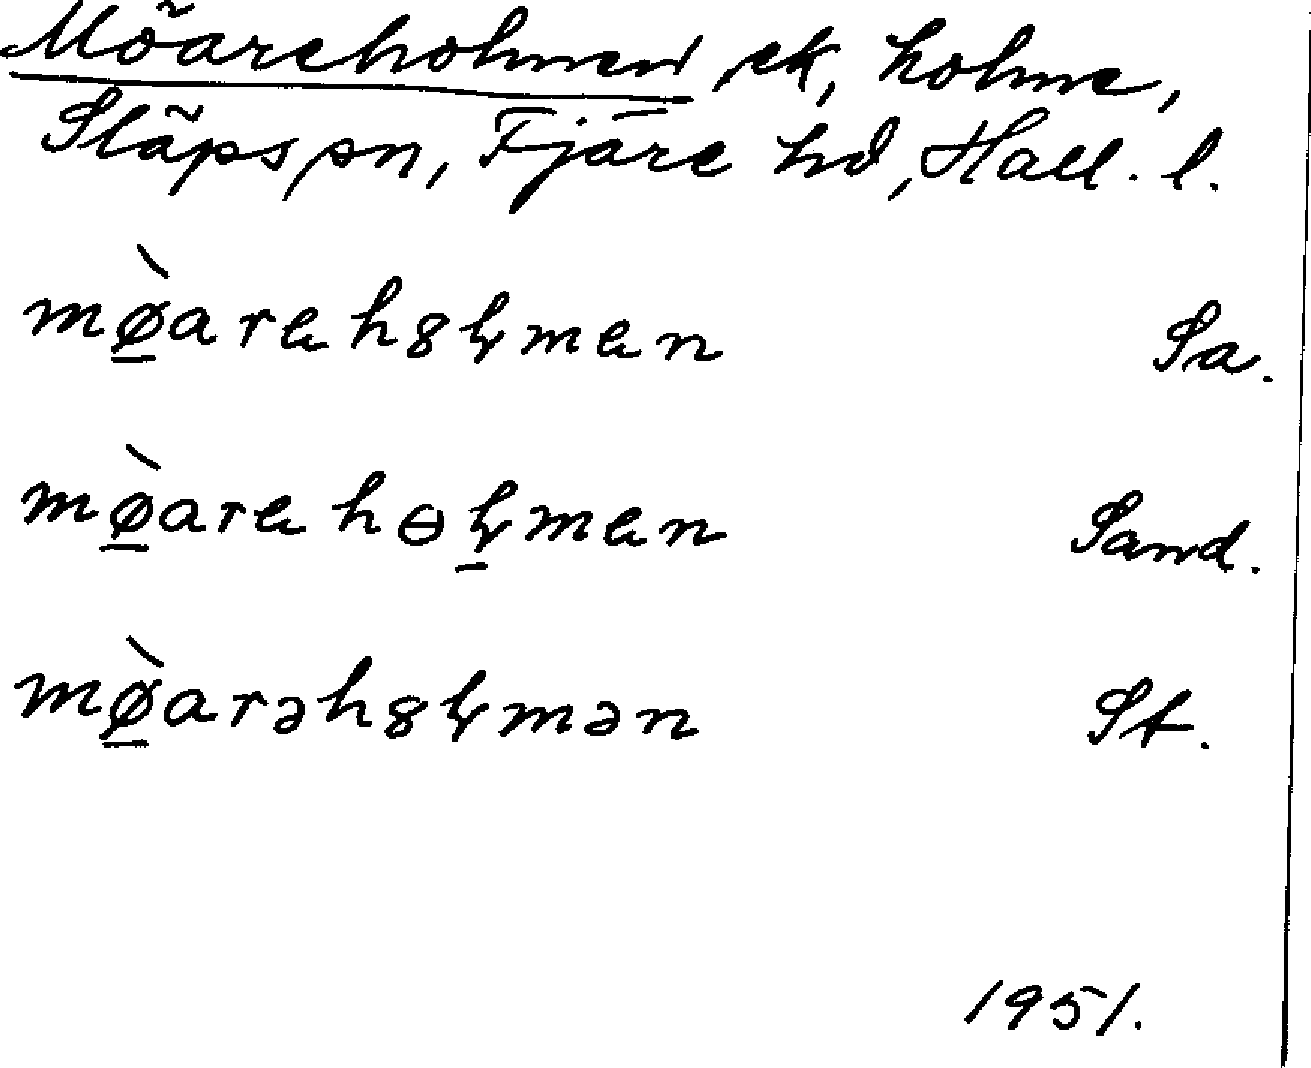 Möareholmen, ek, holme,
Släps sn, Fjäre hd, Hall. l.
mø̱̀arehȣɫmen Sa.
mø̱̀arehɵɫ̱men Sand.
mø̱̀arəhȣɫmən St.
1951.